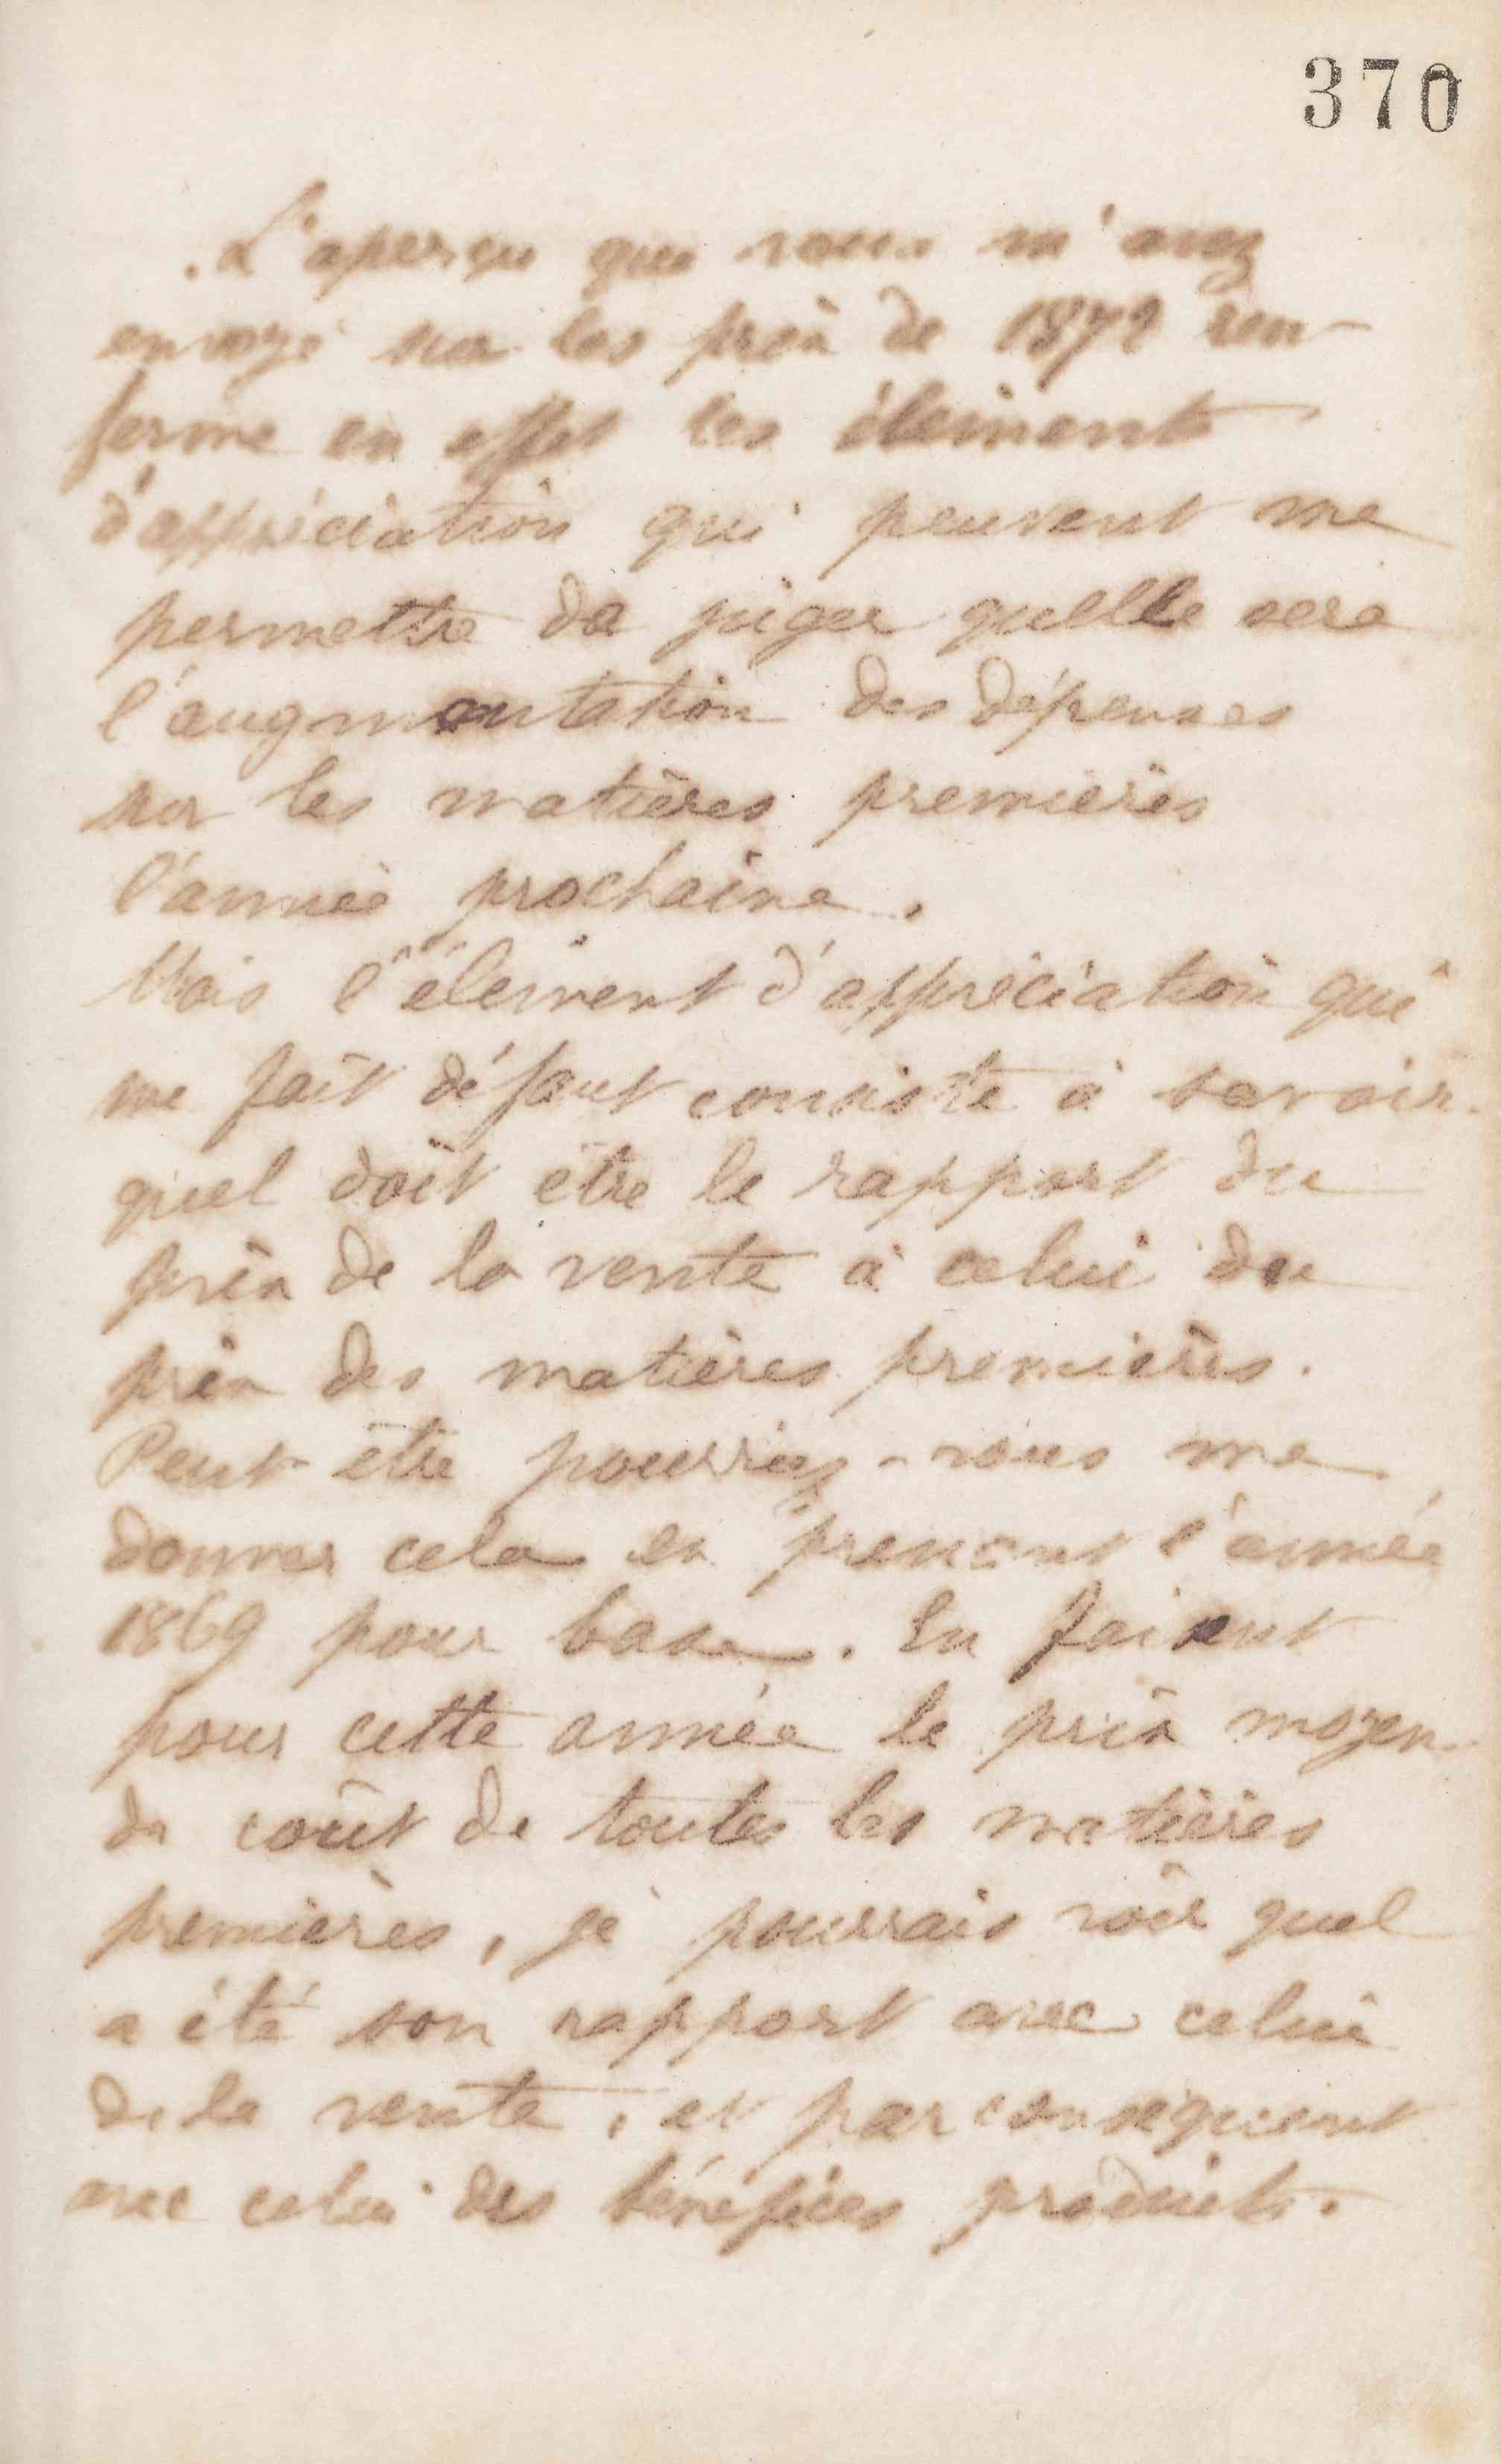 370
L'aperçu que vous m'avez
envoyé sur les prix de 1872 ren-
ferme en effet les éléments
d'appréciation qui peuvent me
permettre de juger quelle sera
l'augmentation des dépenses
sur les matières premières
l'année prochaine.
Mais l'élément d'appréciation qui
me fait défaut consiste à savoir
quel doit être le rapport du
prix de la vente à celui du
prix des matières premières.
Peut-être pourriez-vous me
donner cela en prenant l'année
1869 pour base. En faisant
pour cette année le prix moyen
du coût de toutes les matières
premières, je pourrais voir quel
a été son rapport avec celui
de la vente, et par conséquent
avec celui des bénéfices produits.